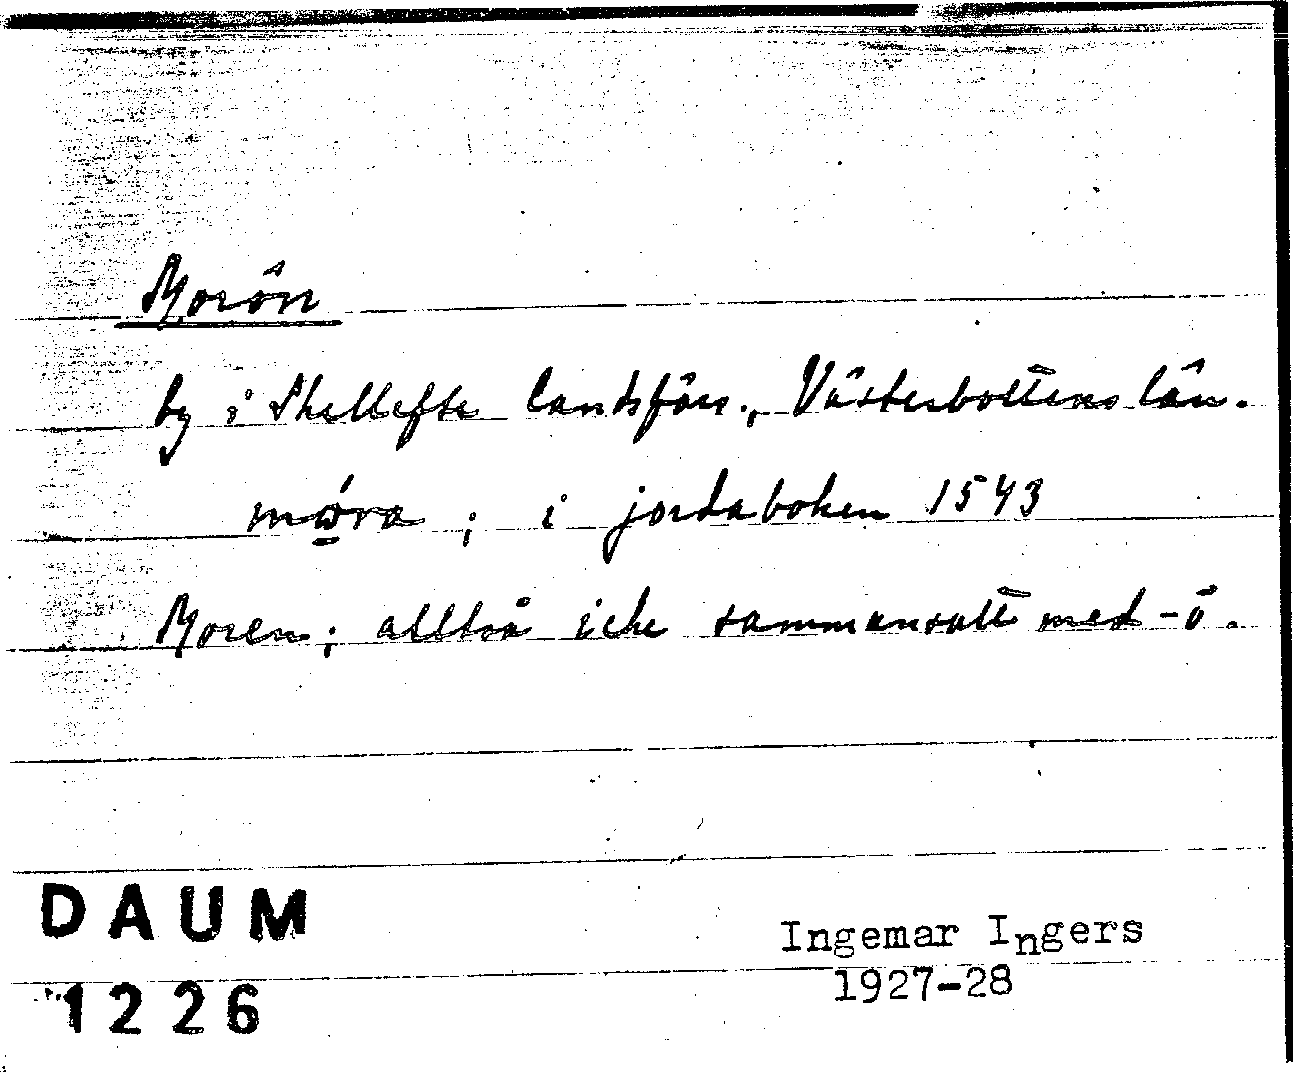 Morön
by i Skellefte landsförs., Västerbottens län.
mǫ́ra ; i jordaboken 1543
Moren; alltså icke sammansatt med -ö.
DAUM
1226
Ingemar Ingers
1927-28